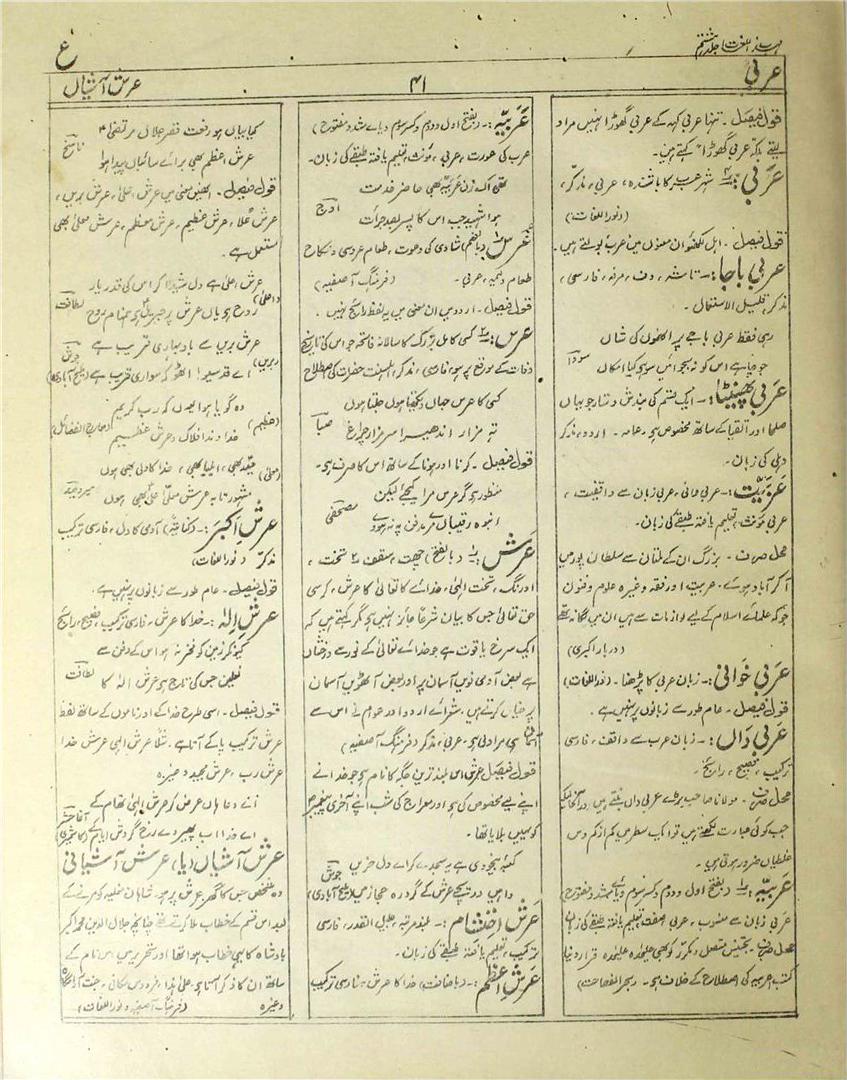 مہذب اللغات جلد ہشتم
ع
عربی
۴۱
عرش آشیاں
قول فیصل ۔ تنہا عربی کہہ کے عربی گھوڑا نہیں مراد
لیتے بلکہ عربی گھوڑا کہتے ہیں۔
عربی :۔ شہر عرب کا باشندہ ، عربی ، مذکر ،
(نوراللغات)
قول فیصل ۔ اہل لکھنؤ ان معنوں میں عرب بولتے ہیں۔
عربی باجا :۔ تاشہ ، دف ، مرفہ ، فارسی ،
مذکر ، قلیل الاستعمال ۔
رہی فقط عربی باجے پر انھوں کی شان
جو چاہے اس کو نہ بجوائیں سو کیا امکاں
سودا
عربی پھینٹا :۔ ایک قسم کی بندش دستار جو یہاں
صلحا اور اتقیا کے ساتھ مخصوص ہے ، عامہ ۔ اردو ، مذکر
دہلی کی زبان۔
عربیت :۔ عربی دانی ، عربی زبان سے واقفیت ،
عربی مونث ، تعلیم یافتہ طبقے کی زبان۔
محل صرف ۔ بزرگ ان کے ملتان سے سلطان پور میں
آکر آباد ہوئے ۔ عربیت اور فقہ وغیرہ علوم و فنون
جو کہ علمائے اسلام کے لیے لوازمات سے ہیں ان میں یگانہ تھے
(دربار اکبری)
عربی خوانی :۔ زبان عربی کا پڑھنا ۔ (نوراللغات)
قول فیصل ۔ عام طور سے زبانوں پر نہیں ہے ۔
عربی داں :۔ زبان عرب سے واقف ، فارسی
ترکیب ، فصیح ، رائج ۔
محل صرف ۔ مولانا صاحب بڑے عربی داں بنتے ہیں در آنحالیکہ
جب کوئی عبارت لکھتے ہیں تو ایک سطر میں کم از کم دس
غلطیاں ضرور ہوتی ہیں ۔
عربیہ :۔ (بفتح اول و دوم و کسر سوم و یائے مشدد مفتوح)
عربی زبان سے منسوب ، عربی صفت تعلیم یافتہ طبقے کی زبان
محل صرف ۔ تجنیس متصل و مکرر کو بھی علیحدہ علیحدہ قرار دینا
کتب عربیہ کی اصطلاح کے خلاف ہے ۔ (بحر الفصاحت)
عربیہ :۔ (بفتح اول و دوم و کسر سوم و یائے مشدد مفتوح)
عرب کی عورت ، عربی ، مونث ، تعلیم یافتہ طبقے کی زبان۔
تھی اک زن عربیہ بھی حاضر خدمت
ہوا شہید جب اس کا پسر بصد جرأت
اوج
عرس :۔ (بالضم) شادی کی دعوت ، طعام عروسی و نکاح
طعام ولیمہ ، عربی ۔ (فرہنگ آصفیہ)
قول فیصل ۔ اردو میں ان معنی میں یہ لفظ رائج نہیں ۔
عرس :۔ کسی کامل بزرگ کا سالانہ فاتحہ جو اس کی تاریخ
وفات کے موقع پر ہو ، فارسی ، مذکر ، اہلسنت حضرات کی اصطلاح
کسی کا عرس جہاں دیکھتا ہوں جلتا ہوں
تہ مزار اندھیرا سر مزار چراغ
صبا
قول فیصل ۔ کرنا اور ہونا کے ساتھ اس کا صرف ہے ۔
منظور ہو گر عرس مرا کیجئے لیکن
انبوہ رقیباں مرے مدفن پہ نہ ہووے
مصحفی
عرش :۔ (بالفتح) چھت ، سقف ، تخت ،
اورنگ ، تخت الہیٰ ، خدائے تعالیٰ کا عرش ، کرسی
حق تعالیٰ جس کا بیان شرعاً جائز نہیں ہے مگر کہتے ہیں کہ
ایک سرخ یاقوت ہے جو خدائے تعالیٰ کے نور سے درخشاں
ہے بعض آدمی نویں آسمان پر اور بعض آٹھویں آسمان
پر خیال کرتے ہیں ۔ شعرائے اردو اور عوام نے اس سے
آسمان ہی مراد لی ہے ۔ عربی ، مذکر (فرہنگ آصفیہ)
قول فیصل عرش اس بلند ترین جگہ کا نام ہے جو خدا نے
اپنے لیے مخصوص کی ہے اور معراج کی شب اپنے آخری پیغمبر
کو یہیں بلایا تھا ۔
کعبۂ بیخودی ہے یہ سجدے کر اے دل حزیں
وا ہیں دریچے عرش کے گرد رہ مجاز میں
جوش (ملیح آبادی)
عرش احتشام :۔ بلند مرتبہ ، جلیل القدر ، فارسی
ترکیب ، تعلیم یافتہ طبقے کی زبان۔
عرش اعظم :۔ (باضافت) خدا کا عرش ، فارسی ترکیب
کیا بیاں ہو رفعت قصر جلال مرتضیٰ
عرش اعظم بھی برائے سائباں پیدا ہوا
ناسخ
قول فیصل ۔ انھیں معنی میں عرش اعلیٰ ، عرش بریں ،
عرش عُلا ، عرش عظیم ، عرش معظم ، عرش معلیٰ بھی
مستعمل ہے ۔
(اعلیٰ)
عرش اعلیٰ ہے دل شیدا کر اس کی قدر یار
روح ہو یاں عرش پر جبریل ہے ہمنام روح
لطافت
(بریں)
عرش بریں سے باد بہاری قریب ہے
اے قدسیو! اٹھو کہ سواری قریب ہے
جوش (ملیح آبادی)
(عظیم)
وہ گویا ہوا یوں کہ رب کریم
خداوند افلاک و عرش عظیم
(معارج الفضائل)
(معلیٰ)
حیدر بھی ، ایلیا بھی ، خدا کا ولی بھی ہوں
مشہور تا بہ عرش معلّا علی بھی ہوں
عرش اکبر :۔ (کنایۃً) آدمی کا دل ، فارسی ترکیب
مذکر (نوراللغات)
قول فیصل ۔ عام طور سے زبانوں پر نہیں ہے ۔
عرش الہ :۔ خدا کا عرش ، فارسی ترکیب ، فصیح ، رائج
کیونکر زمین کو فخر نہ ہو اس کے دفن سے
نعلین جس کی تاج ہو عرش الہ کا
لطافت
قول فیصل ۔ اسی طرح خدا کے اور ناموں کے ساتھ لفظ
عرش ترکیب پا کے آتا ہے ۔ مثلاً عرش الہی عرش خدا
عرش رب ، عرش مجید وغیرہ
آنے دعا ہاں عرض کو عرش الہیٰ تھام کے
اے خدا اب پھیر دے رخ گردش ایام کے
آغا حشر (کاشمیری)
عرش آشیاں (یا) عرش آشیانی
وہ شخص جس کا گھر عرش پر ہو ، شاہان مغلیہ کو مرنے کے
بعد اس قسم کے خطاب ملا کرتے تھے چنانچہ جلال الدین محمد اکبر
بادشاہ کا یہی خطاب ہوا تھا اور تحریر میں اس نام کے
ساتھ ان کا ذکر آتا ہے ، علیٰ ہذا ، فردوس مکانی ، جنت آرامگاہ
وغیرہ (فرہنگ آصفیہ و نوراللغات)